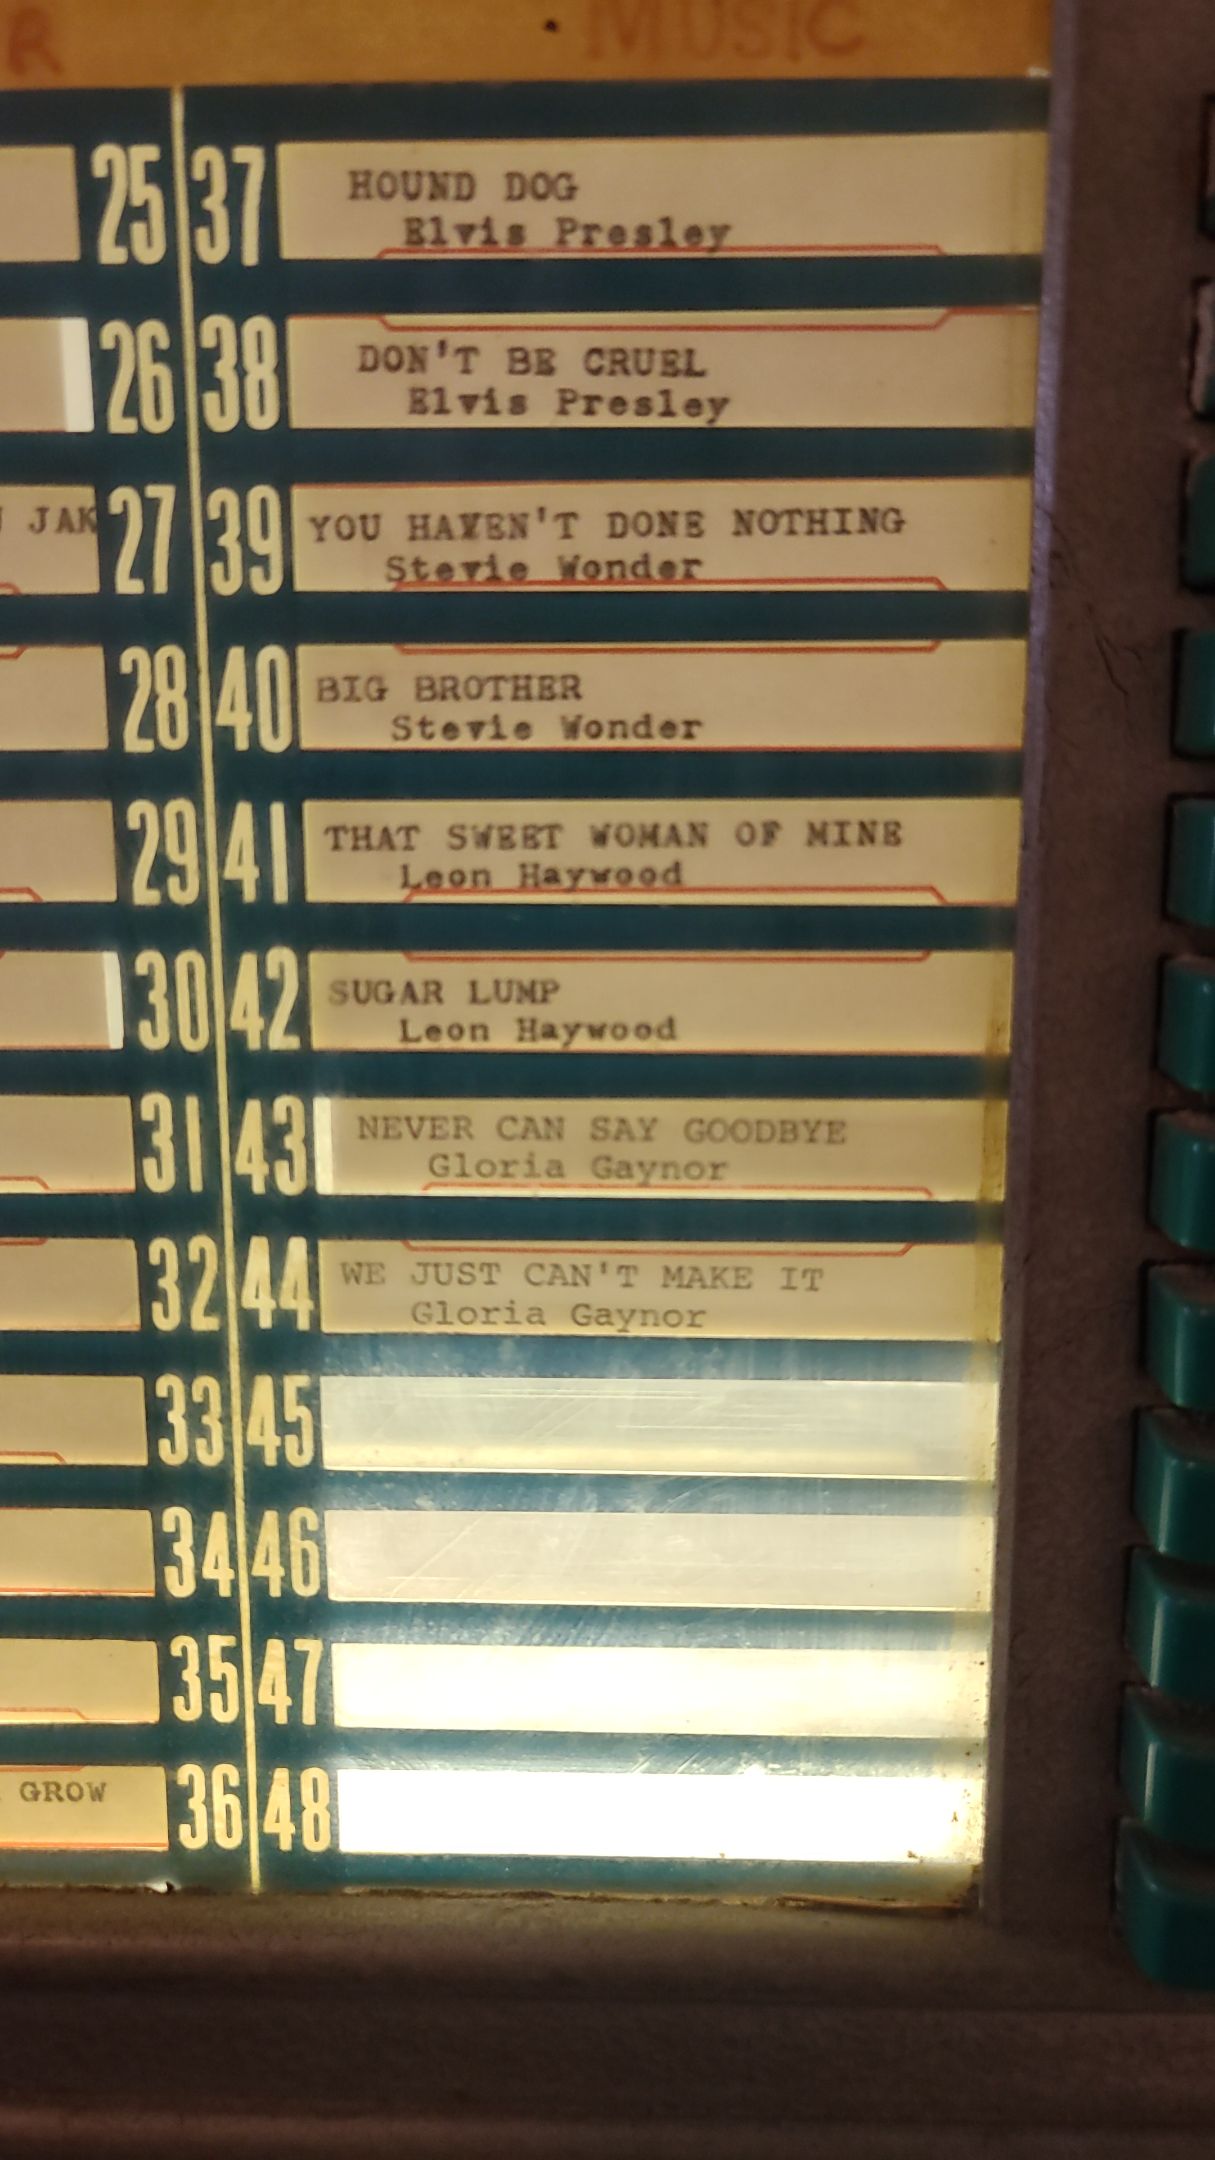 R MUSIC
25 37 HOUND DOG
Elvis Presley
26 38 DON'T BE CRUEL
Elvis Presley
JAK 27 39 YOU HAVEN'T DONE NOTHING
Stevie Wonder
28 40 BIG BROTHER
Stevie Wonder
29 41 THAT SWEET WOMAN OF MINE
Leon Haywood
30 42 SUGAR LUMP
Leon Haywood
31 43 NEVER CAN SAY GOODBYE
Gloria Gaynor
32 44 WE JUST CAN'T MAKE IT
Gloria Gaynor
33 45
34 46
35 47
GROW 36 48